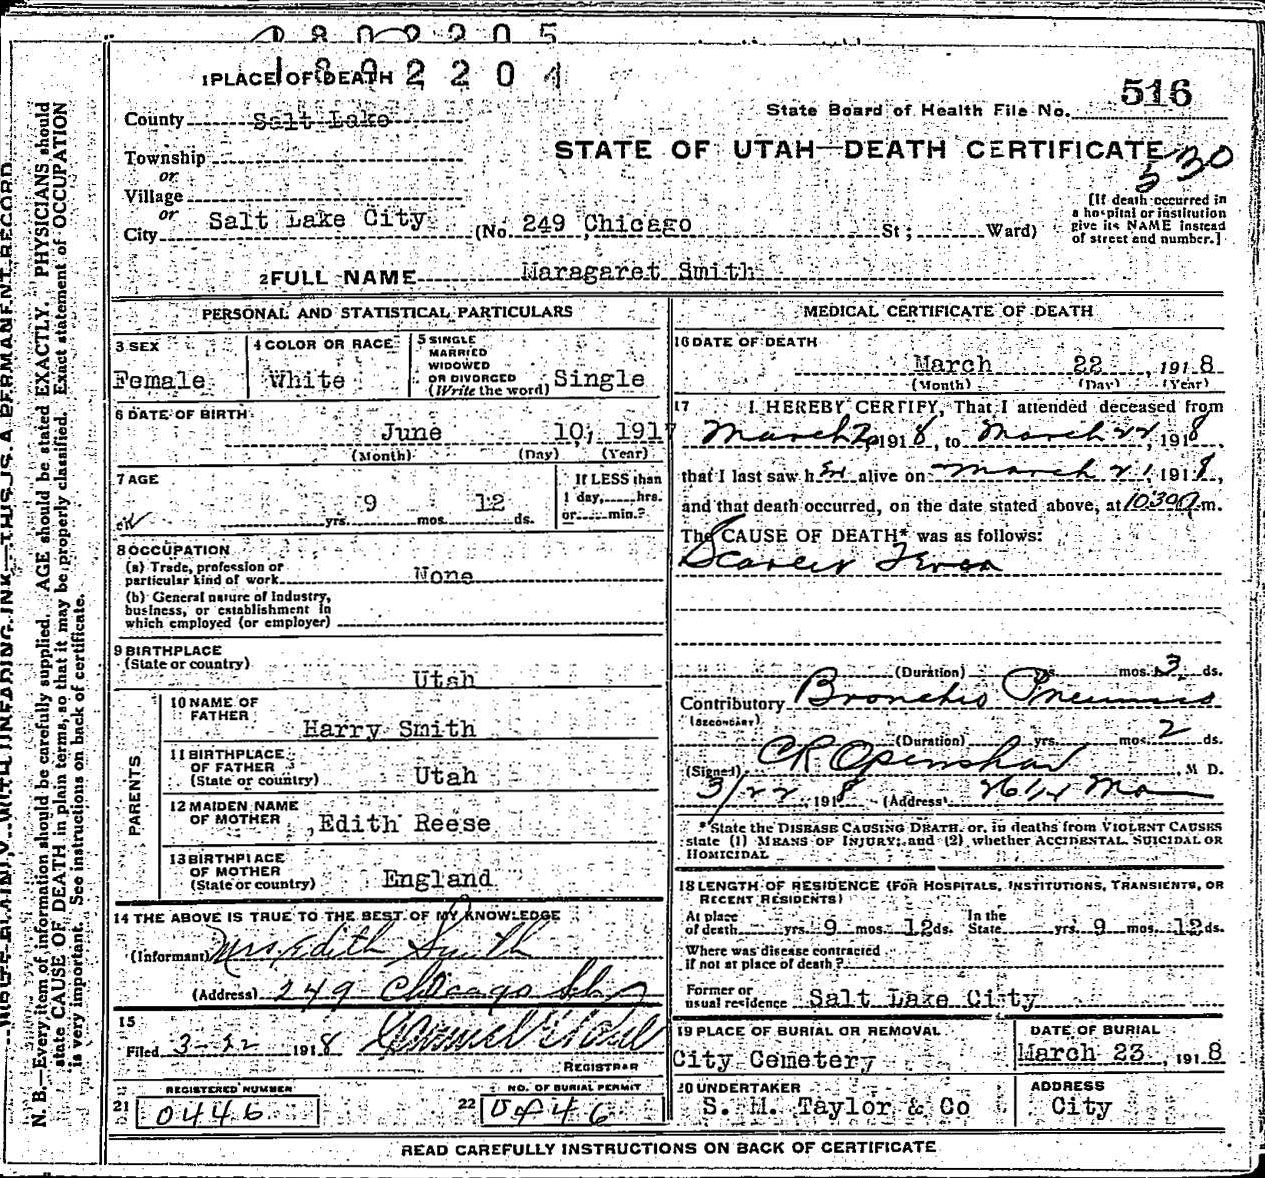 1802205
1892204
1 PLACE OF DEATH
516
State Board of Health File No.
County Salt Lake
STATE OF UTAH—DEATH CERTIFICATE
530
Township
or
Village
or
City Salt Lake City (No. 249 Chicago St; Ward)
[If death occurred in
a hospital or institution
give its NAME instead
of street and number.]
2 FULL NAME Maragaret Smith
PERSONAL AND STATISTICAL PARTICULARS
3 SEX
Female
4 COLOR OR RACE
White
5 SINGLE
MARRIED
WIDOWED
OR DIVORCED
(Write the word) Single
6 DATE OF BIRTH
June 10, 1917
(Month) (Day) (Year)
7 AGE
9 12
yrs. mos. ds.
If LESS than
1 day, hrs.
or min.?
8 OCCUPATION
(a) Trade, profession or
particular kind of work None
(b) General nature of Industry,
business, or establishment in
which employed (or employer)
9 BIRTHPLACE
(State or country)
Utah
PARENTS
10 NAME OF
FATHER
Harry Smith
11 BIRTHPLACE
OF FATHER
(State or country) Utah
12 MAIDEN NAME
OF MOTHER Edith Reese
13 BIRTHPLACE
OF MOTHER
(State or country) England
14 THE ABOVE IS TRUE TO THE BEST OF MY KNOWLEDGE
(Informant) Mrs Edith Smith
(Address) 249 Chicago St
15
Filed 3-22 1918
REGISTRAR
REGISTERED NUMBER
21 0446
NO. OF BURIAL PERMIT
22 0446
MEDICAL CERTIFICATE OF DEATH
16 DATE OF DEATH
March 22, 1918
(Month) (Day) (Year)
17 I HEREBY CERTIFY, That I attended deceased from
March 20 1918, to March 22, 1918,
that I last saw her alive on March 21, 1918,
and that death occurred, on the date stated above, at 10:30 a.m.
The CAUSE OF DEATH* was as follows:
Scarlet Fever
(Duration) yrs. mos. 3 ds.
Contributory Broncho Pneumonia
(SECONDARY)
(Duration) yrs. mos. 2 ds.
(Signed) CR Openshaw M D.
3/22 1918 (Address)
*State the DISEASE CAUSING DEATH, or, in deaths from VIOLENT CAUSES
state (1) MEANS OF INJURY; and (2) whether ACCIDENTAL, SUICIDAL OR
HOMICIDAL
18 LENGTH OF RESIDENCE (FOR HOSPITALS, INSTITUTIONS, TRANSIENTS, OR
RECENT RESIDENTS)
At place
of death yrs. 9 mos. 12 ds.
In the
State yrs. 9 mos. 12 ds.
Where was disease contracted
if not at place of death?
Former or
usual residence Salt Lake City
19 PLACE OF BURIAL OR REMOVAL
City Cemetery
DATE OF BURIAL
March 23, 1918
20 UNDERTAKER
S. M. Taylor & Co
ADDRESS
City
READ CAREFULLY INSTRUCTIONS ON BACK OF CERTIFICATE
WRITE PLAINLY WITH UNFADING INK—THIS IS A PERMANENT RECORD
N. B.—Every item of information should be carefully supplied. AGE should be stated EXACTLY. PHYSICIANS should
state CAUSE OF DEATH in plain terms, so that it may be properly classified. Exact statement of OCCUPATION
is very important. See instructions on back of certificate.